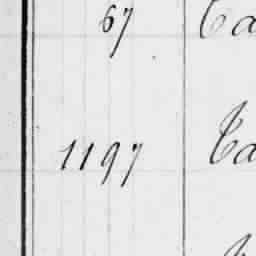 67 Ca
1197 Ca